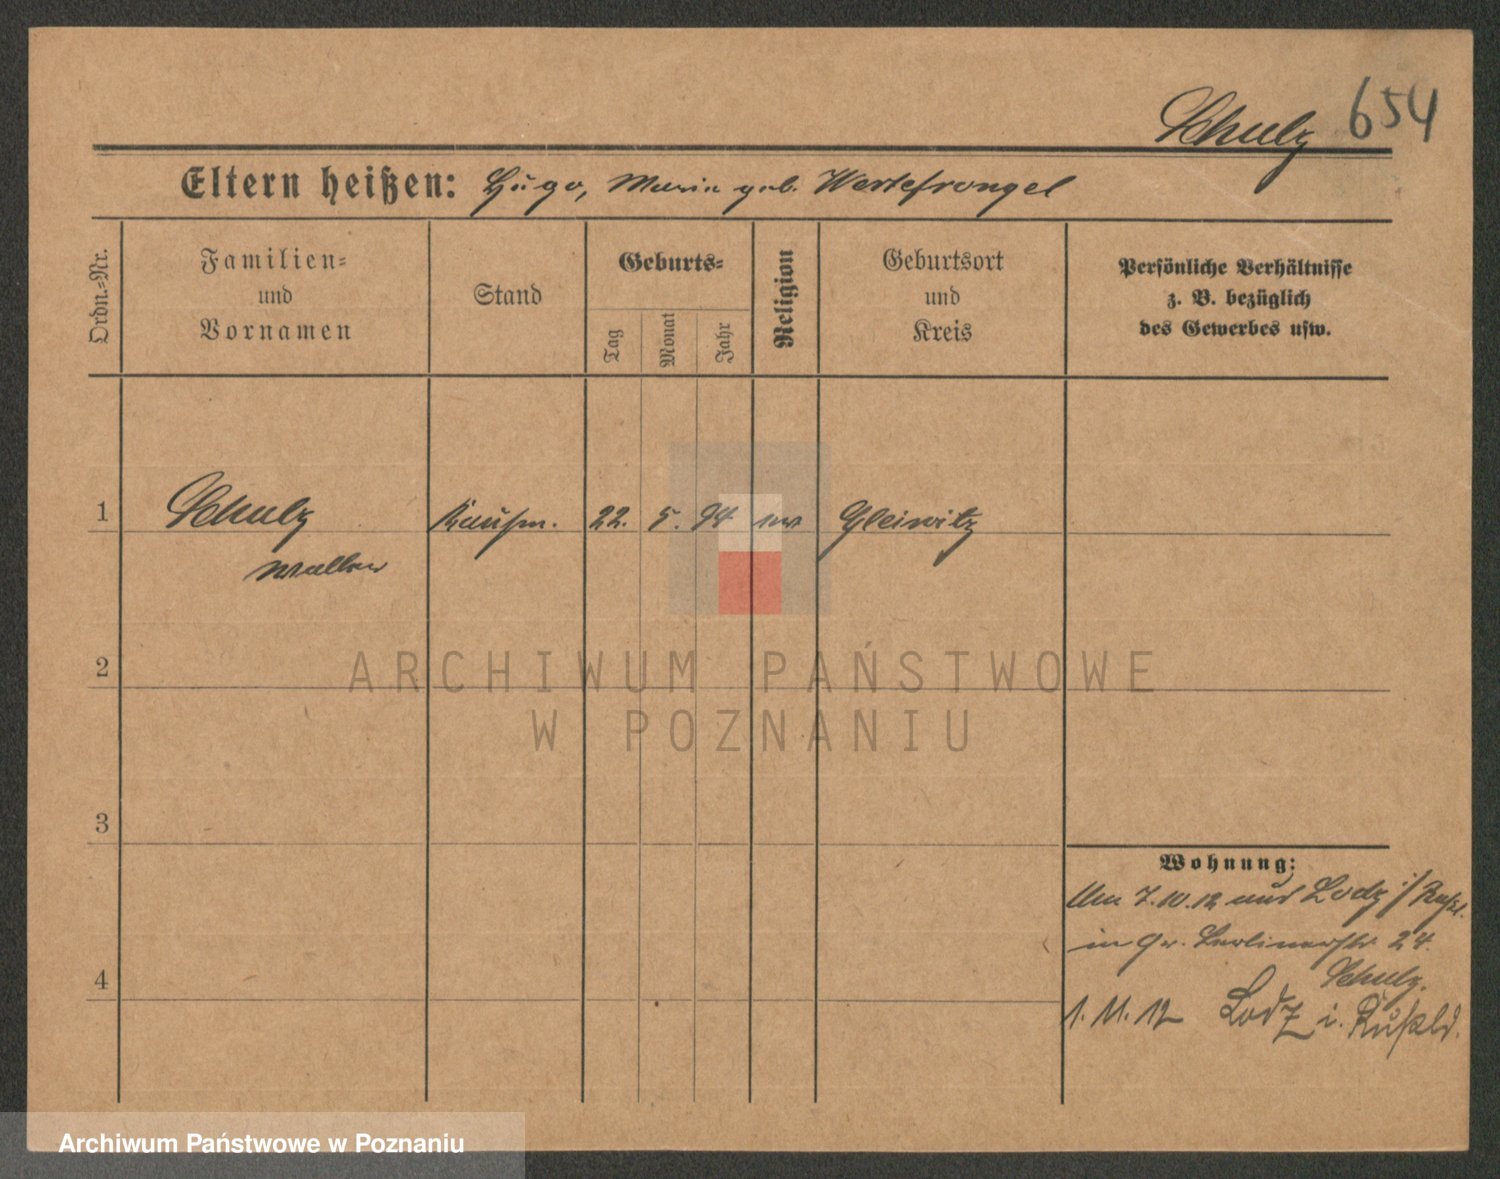 Schulz 654
Eltern heißen: Hugo, Maria geb.
Ordn.-Nr.
Familien- und Vornamen
Stand
Geburts-
Tag
Monat
Jahr
Religion
Geburtsort und Kreis
Persönliche Verhältnisse
z. B. bezüglich
des Gewerbes usw.
1 Schulz Kaufm. 22. 5. 94 Gleiwitz
2
3
4
Wohnung:
7.10.12 aus Lodz i/Rußl.
in Gr. Berlinerstr. 24.
Schulz.
1. 11. 12 Lodz i. Rußld.
ARCHIWUM PAŃSTWOWE
W POZNANIU
Archiwum Państwowe w Poznaniu